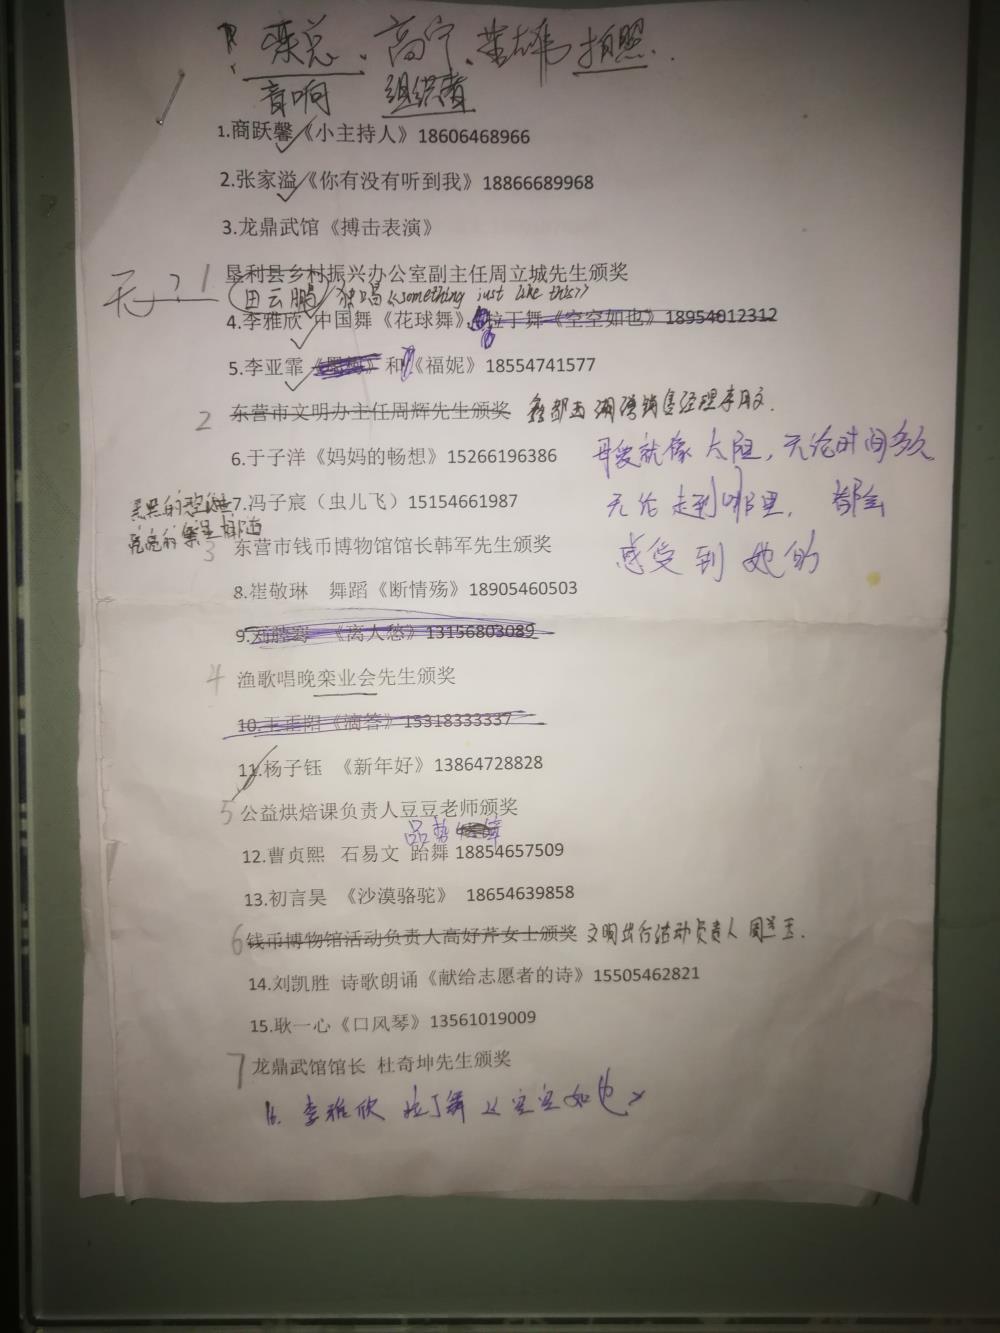 栾总、高宁、荣雄 拍照.
音响 组织者
1.商跃馨《小主持人》18606468966
2.张家溢《你有没有听到我》18866689968
3.龙鼎武馆《搏击表演》
1 垦利县乡村振兴办公室副主任周立城先生颁奖
无 ? (田云鹏) 独唱《something just like this》
4.李雅欣 中国舞《花球舞》、拉丁舞《空空如也》18954012312
5.李亚霏 和《福妮》18554741577
2 东营市文明办主任周辉先生颁奖 鑫都 湖湾销售经理李
6.于子洋《妈妈的畅想》15266196386 母爱就像太阳，无论时间多久
7.冯子宸（虫儿飞）15154661987 无论走到哪里， 都会
黑黑的天空低垂
亮亮的繁星相随
3 东营市钱币博物馆馆长韩军先生颁奖 感受到她的
8.崔敬琳 舞蹈《断情殇》18905460503
9. 《离人愁》13156803089
4 渔歌唱晚栾业会先生颁奖
10.王正阳《滴答》15318333337
11.杨子钰 《新年好》13864728828
5 公益烘焙课负责人豆豆老师颁奖
品势
12.曹贞熙 石易文 跆舞 18854657509
13.初言昊 《沙漠骆驼》 18654639858
6 钱币博物馆活动负责人高好芹女士颁奖 文明出行活动负责人 周兰玉.
14.刘凯胜 诗歌朗诵《献给志愿者的诗》15505462821
15.耿一心《口风琴》13561019009
7 龙鼎武馆馆长 杜奇坤先生颁奖
16. 李雅欣 拉丁舞《空空如也》